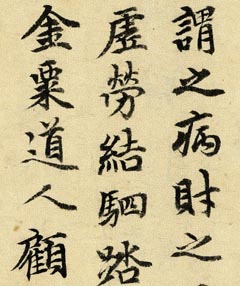 謂之病財之
虛勞結駟踏
金粟道人顧